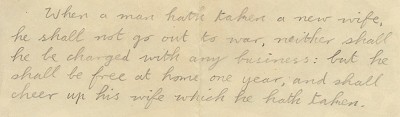 When a man hath taken a new wife,
he shall not go out to war, neither shall
he be charged with any business: but he
shall be free at home one year, and shall
cheer up his wife which he hath taken.